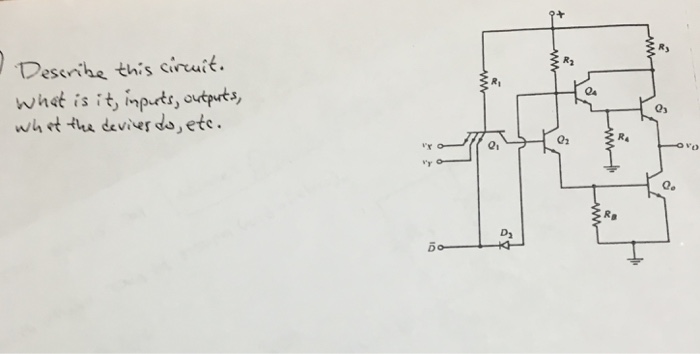 ) Describe this circuit.
What is it, inputs, outputs,
what the devices do, etc.
+
R₁
R₂
R₃
Q₄
Q₃
vX
vY
Q₁
Q₂
R₄
vO
Q₀
R_B
D₂
D̄